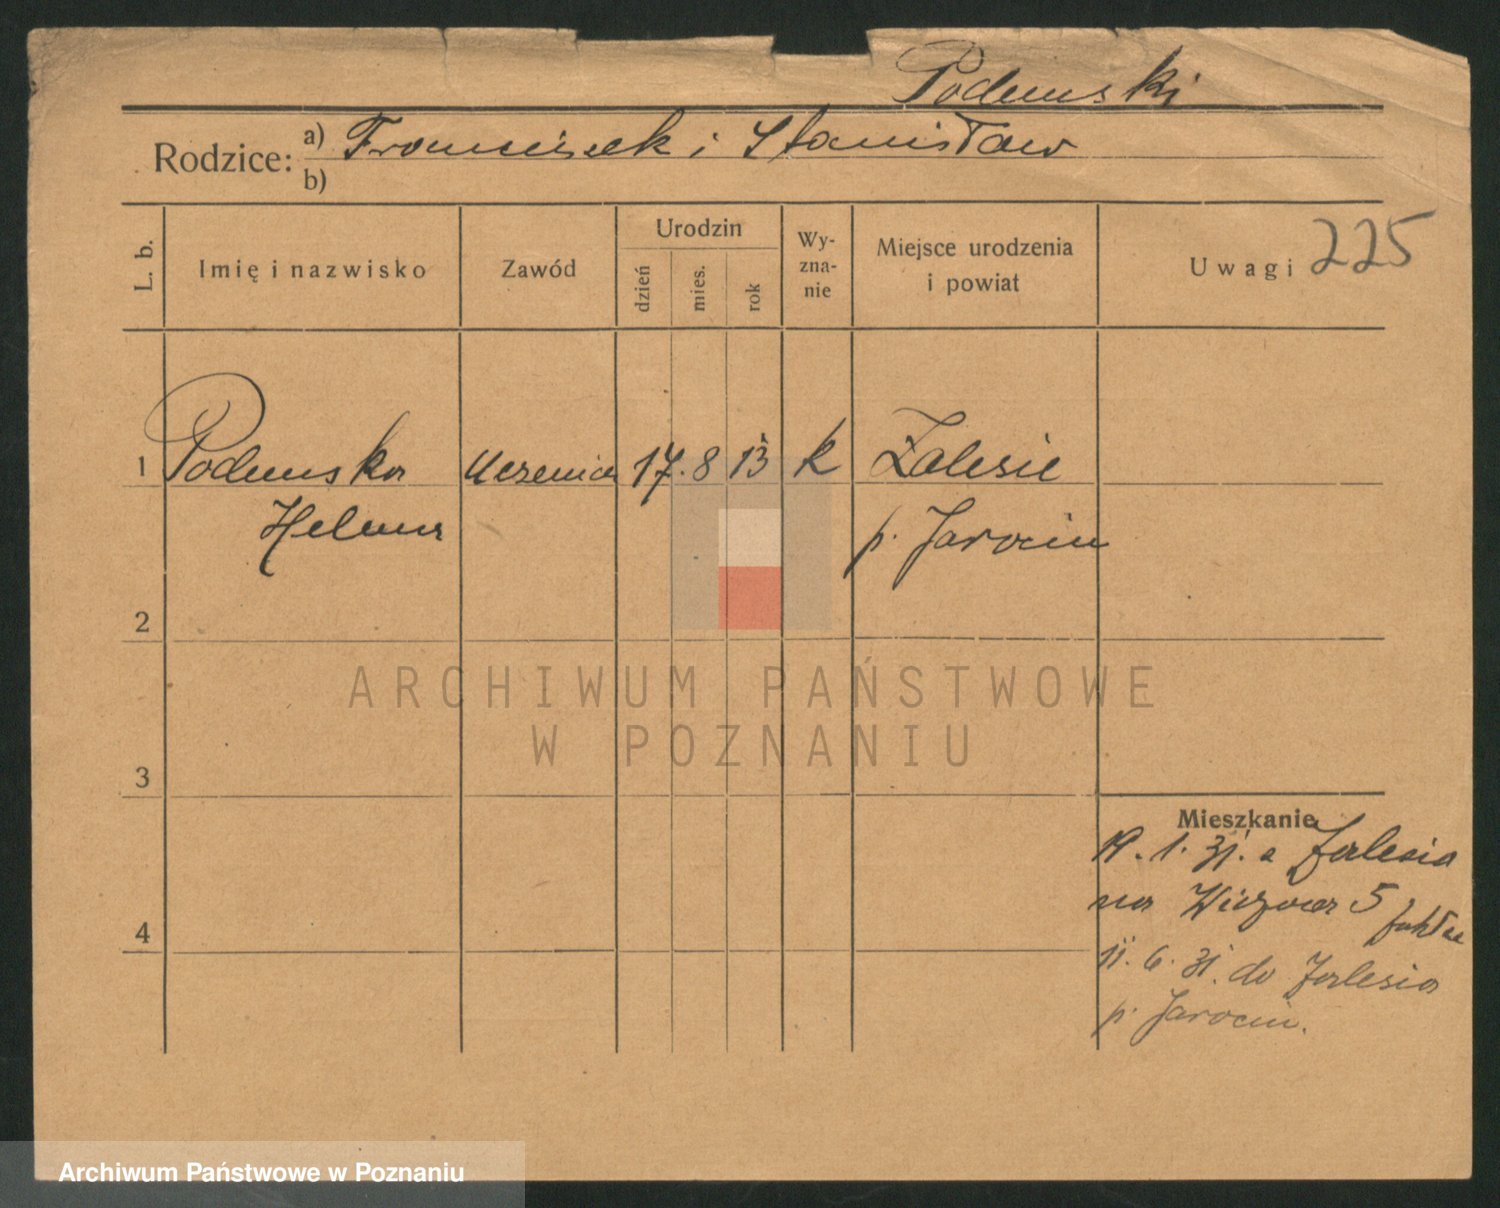 Podemski
Rodzice: a) Franciszek i Stanisław
b)
L. b.
Imię i nazwisko
Zawód
Urodzin
dzień
mies.
rok
Wy-
zna-
nie
Miejsce urodzenia
i powiat
Uwagi
225
1 Podemska Uczenica 17. 8 13 k Zalesie
Helena p. Jarocin
2
3
4
Mieszkanie
1. 31. z Zalesia
na 5
11. 6. 31. do Zalesia
p. Jarocin.
ARCHIWUM PAŃSTWOWE
W POZNANIU
Archiwum Państwowe w Poznaniu